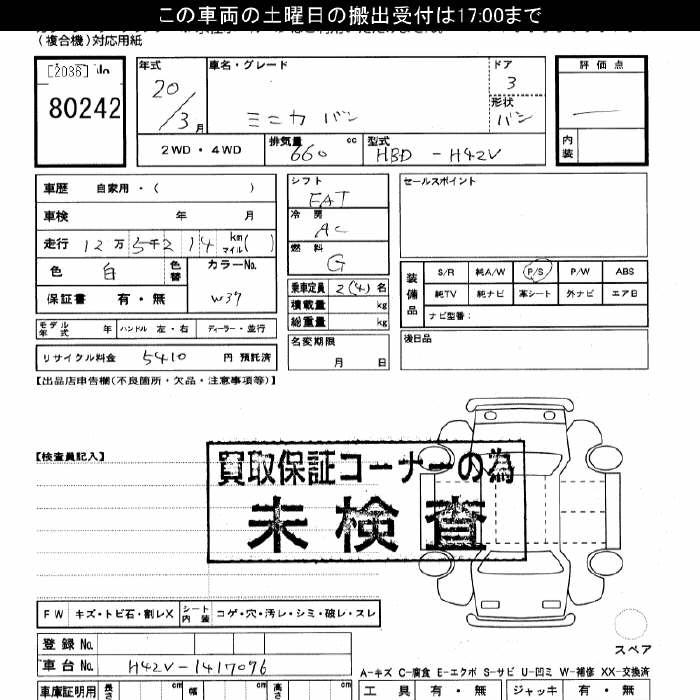 この車両の土曜日の搬出受付は17:00まで
(複合機)対応用紙
[2036] No
80242
年式
20/3月
車名・グレード
ミニカ バン
ドア
3
形状
バン
評価点
内装
2WD・4WD
排気量
660 cc
型式
HBD - H42V
車歴 自家用・( )
車検 年 月
走行 12万5千214 km マイル( )
色 白 色替
カラーNo.
W37
保証書 有・無
シフト
FAT
冷房
AC
燃料
G
乗車定員 2(4)名
積載量 kg
総重量 kg
名変期限
月 日
セールスポイント
装備品
S/R 純A/W P/S P/W ABS
純TV 純ナビ 革シート 外ナビ エアB
ナビ型番:
後日品
モデル年式 年 ハンドル 左・右 ディーラー・並行
リサイクル料金 5410 円 預託済
【出品店申告欄(不良箇所・欠品・注意事項等)】
【検査員記入】
買取保証コーナーの為
未検査
FW キズ・トビ石・割レX シート内装 コゲ・穴・汚レ・シミ・破レ・スレ
スペア
登録No.
車台No. H42V-1417096
A-キズ C-腐食 E-エクボ S-サビ U-凹ミ W-補修 XX-交換済
車庫証明用 長さ cm 幅 cm 高さ cm
工具 有・無 ジャッキ 有・無